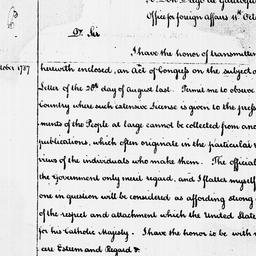 To Don Diego de Gardoqui
Office for foreign Affairs 11th Octo
Dr. Sir
I have the honor of transmittin
tober 1787
herewith enclosed, an Act of Congress on the subject o
Letter of the 20th day of august last. Permit me to observe
Country where such extensive License is given to the press
ments of the People at large cannot be collected from ano
publications, which often originate in the particular v
views of the individuals who make them. The official
the Government only merit regard, and I flatter myself
one in question will be considered as affording strong e
of the respect and attachment which the United State
for his Catholic Majesty. I have the honor to be with g
eat Esteem and Regard &